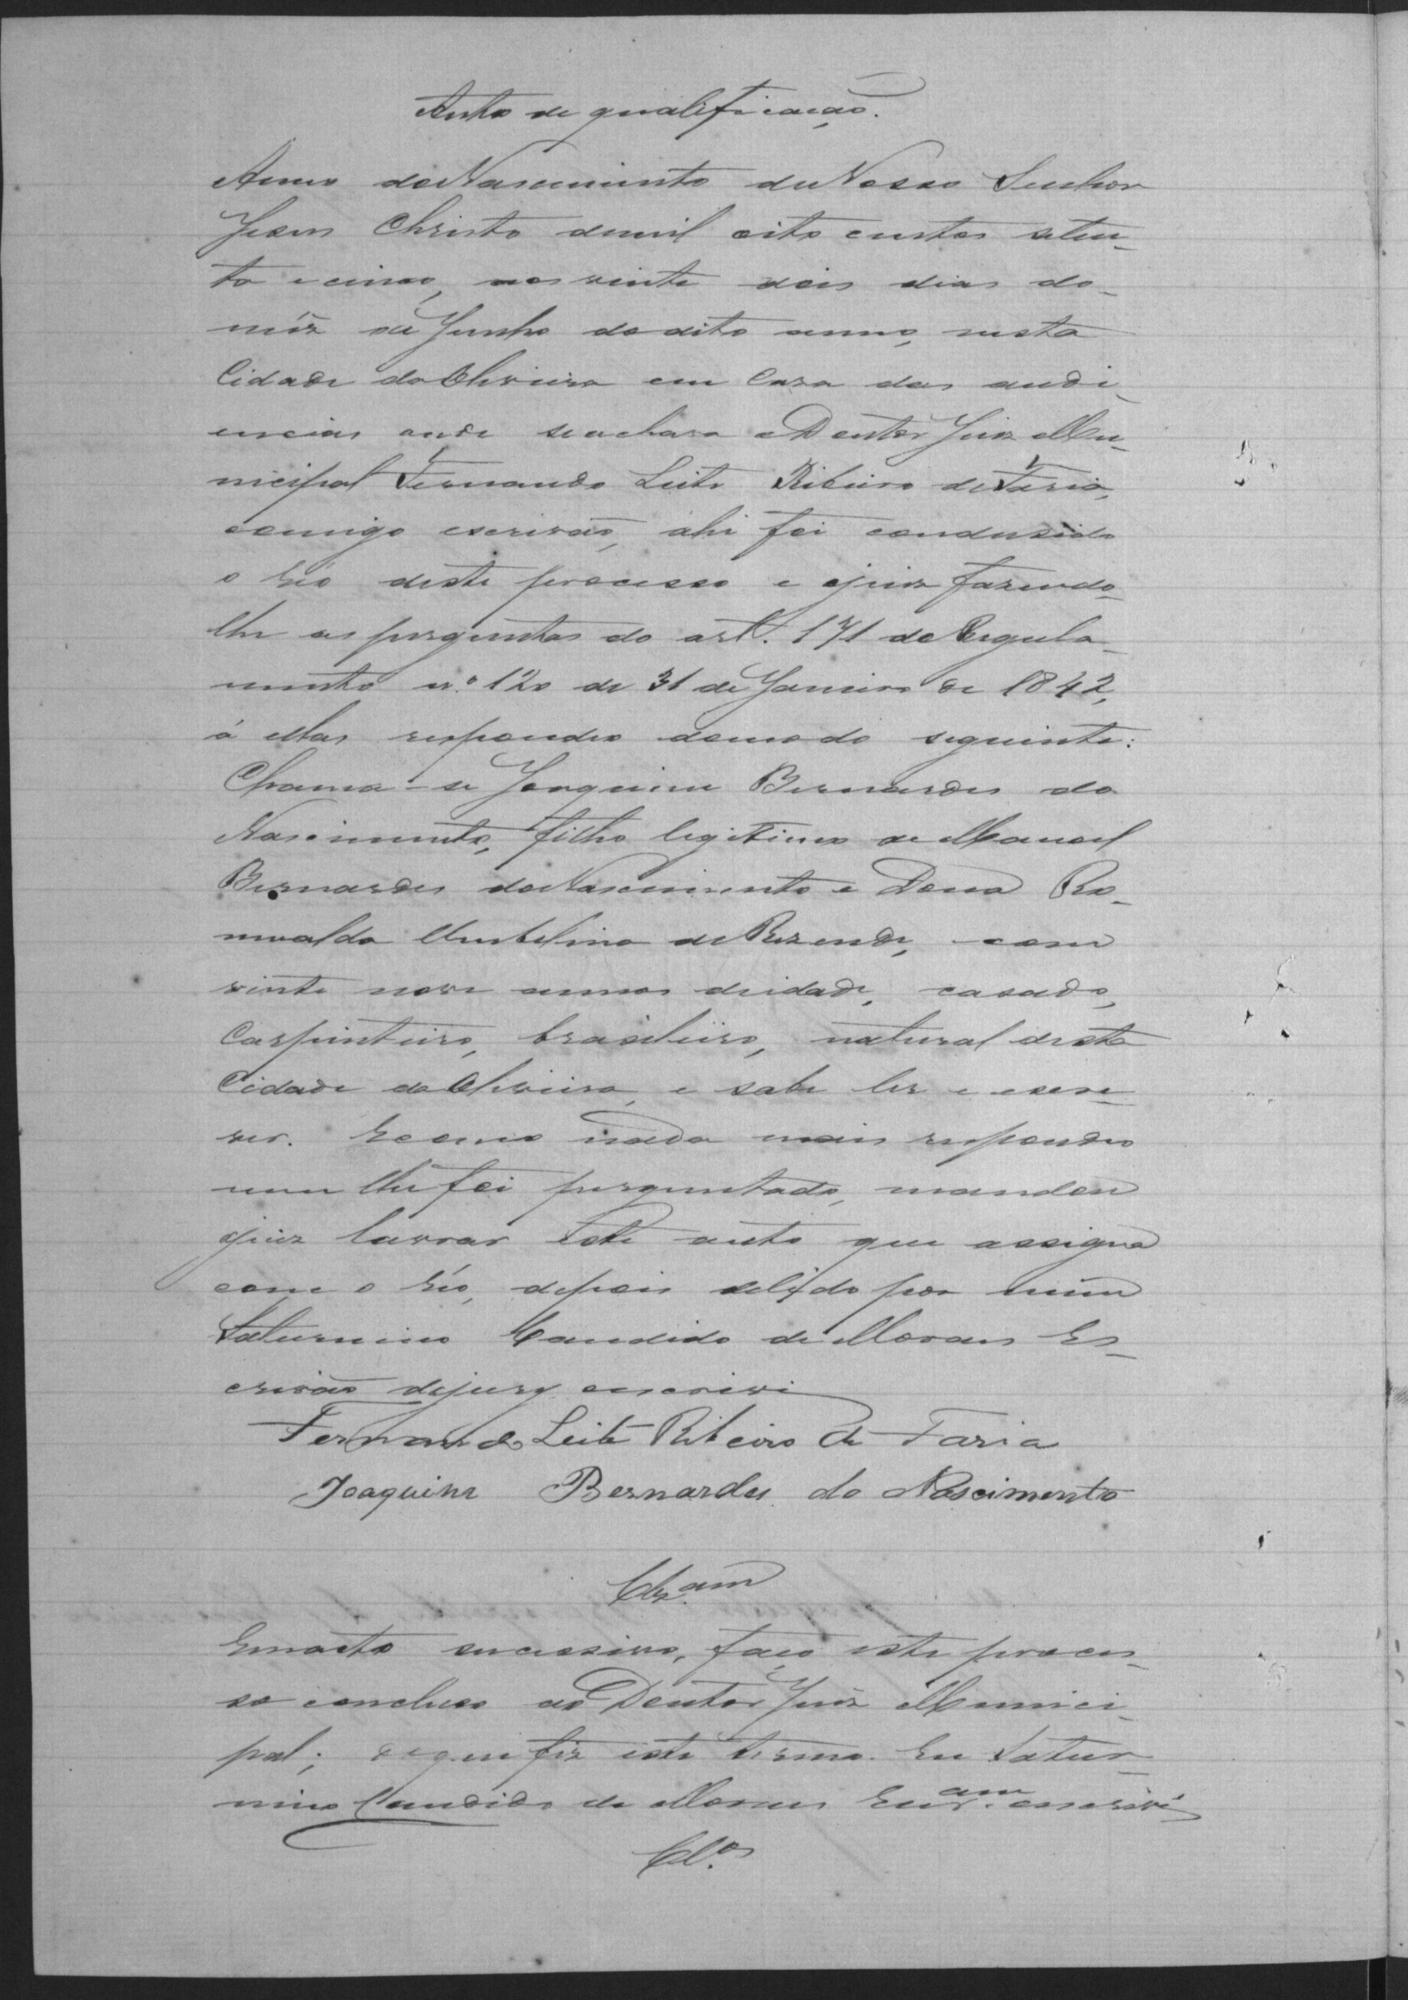 Auto de qualificação.
Anno do Nascimento de Nosso Senhor
Jesus Christo de mil oito centos seten-
ta e cinco, aos vinte dois dias do
mêz de Junho do dito anno, nesta
Cidade da Oliveira em Casa das audi-
encias onde se achava o Doutor Juiz Mu-
nicipal Fernando Leite Ribeiro de Faria,
comigo escrivão, ahi foi condusido
o réo deste processo e o juiz fazendo-
lhe as perguntas do art. 171 do Regula-
mento n.º 120 de 31 de Janeiro de 1842,
á ellas respondeo do modo seguinte:
Chama-se Joaquim Bernardes do
Nascimento, filho legitimo de Manoel
Bernardes do Nascimento e Dona Ro-
mualda Umbelina de Rezende, com
vinte nove annos de idade, casado,
Carpinteiro, brasileiro, natural desta
Cidade da Oliveira, e sabe ler e escre-
ver. E como nada mais respondeo
nem lhe foi perguntado, mandou
o juiz lavrar este auto que assigna
com o réo, depois de lido por mim
Saturnino Candido de Moraes Es-
crivão do jury, escrivi
Fernando Leite Ribeiro de Faria
Joaquim Bernardes do Nascimento
Clz.am
Em acto sucessivo, faço este proces-
so concluso ao Doutor Juiz Munici-
pal; de que fiz este termo. Eu Satur-
nino Candido de Moraes Escr.am escrivi
Cl.os